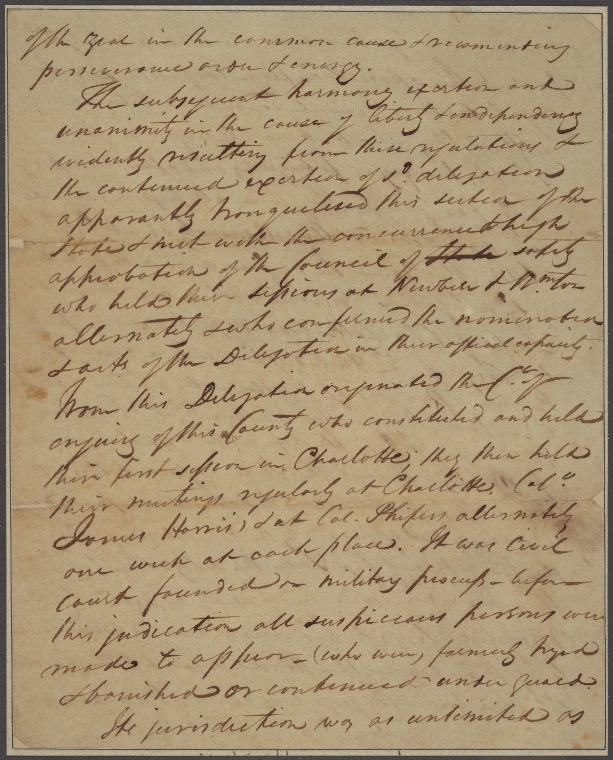 of the zeal in the common cause & recommending
perseverance order & energy.
The subsequent harmony exertion and
unanimity in the cause of liberty & independency
evidently resulting from these regulations &
the continued exertion of sd. delegation
apparantly tranquelised this section of the
State & met with the concurrence & high
approbation of the Council of State safety
who held their sessions at Newbern & Wmton
alternately & who confirmed the nomination
& acts of the Delegation in their official capacity.
From this Delegation originated the Ct. of
enquiry of this County who constituted and held
their first session in Charlotte; they then held
their meetings regularly at Charlotte, Colo.
James Harris's & at Col. Phifers alternately
one week at each place. It was civil
court founded on military process - before
this judication all suspicious persons were
made to appear - (who were) formerly tryed
& banished or continued under guard.
Its jurisdiction was as unlimited as